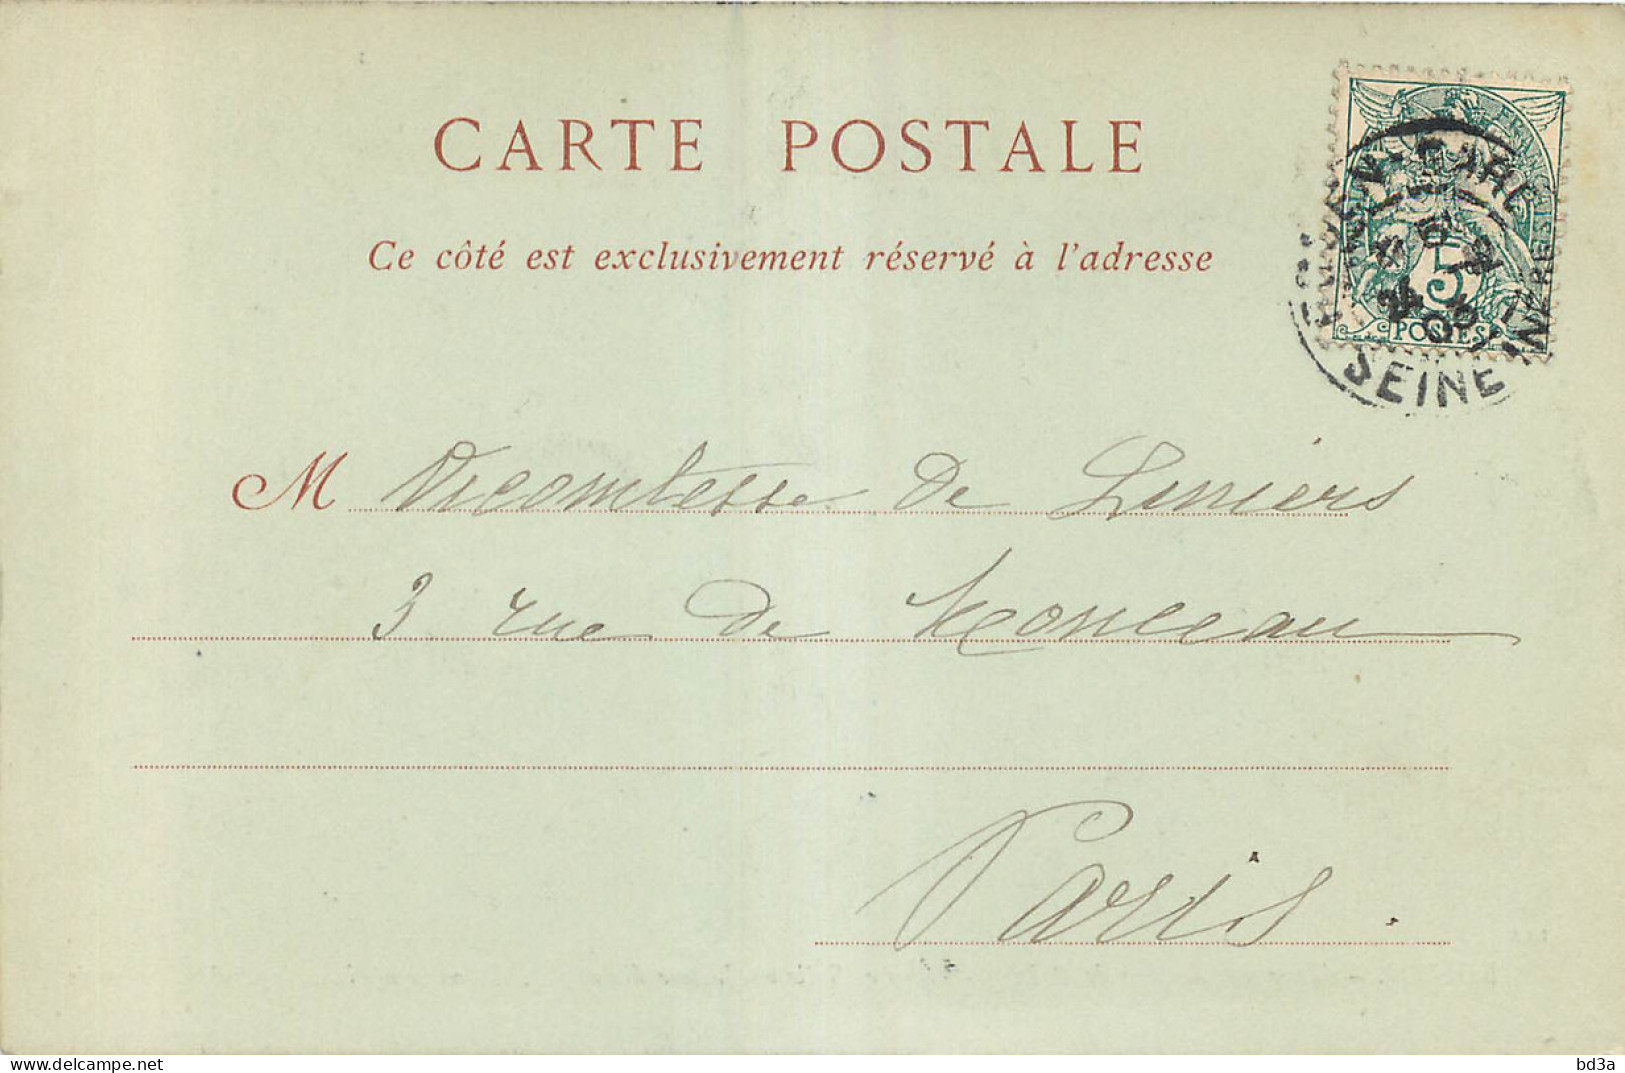 CARTE POSTALE
Ce côté est exclusivement réservé à l'adresse
5
POSTES
SEINE INFRE
M Vicomtesse de Liniers
3 rue de Monceau
Paris.
delcampe.net
bd3a